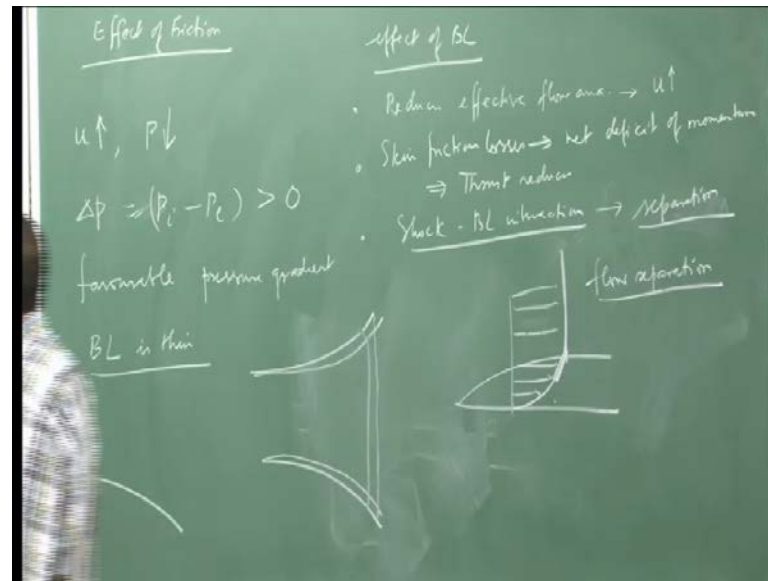 Effect of Friction
u↑, P↓
Δp = (Pi - Pe) > 0
favourable pressure gradient
BL is thin
effect of BL
• Reduces effective flow area → u↑
• Skin friction losses → net deficit of momentum
⇒ Thrust reduces
• Shock - BL interaction → separation
flow separation